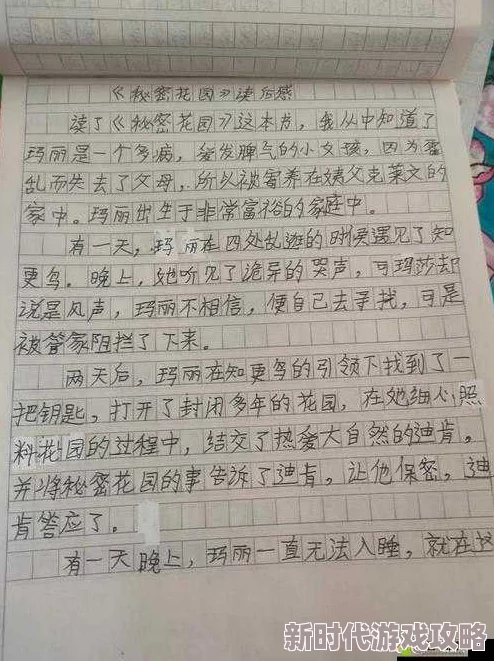 《秘密花园》读后感
读了《秘密花园》这本书，我从中知道了
玛丽是一个多病，爱发脾气的小女孩，因为霍
乱而失去了父母，所以被寄养在姨父克莱文的
家中。玛丽出生于非常富裕的家庭中。
有一天，玛丽在四处乱逛的时候遇见了知
更鸟。晚上，她听见了诡异的哭声，可玛莎却
说是风声，玛丽不相信，便自己去寻找，可是
被管家阻拦了下来。
两天后，玛丽在知更鸟的引领下找到了一
把钥匙，打开了封闭多年的花园，在她细心照
料花园的过程中，结交了热爱大自然的迪肯。
并将秘密花园的事告诉了迪肯。让他保密，迪
肯答应了。
有一天晚上，玛丽一直无法入睡，就在这
新时代游戏攻略